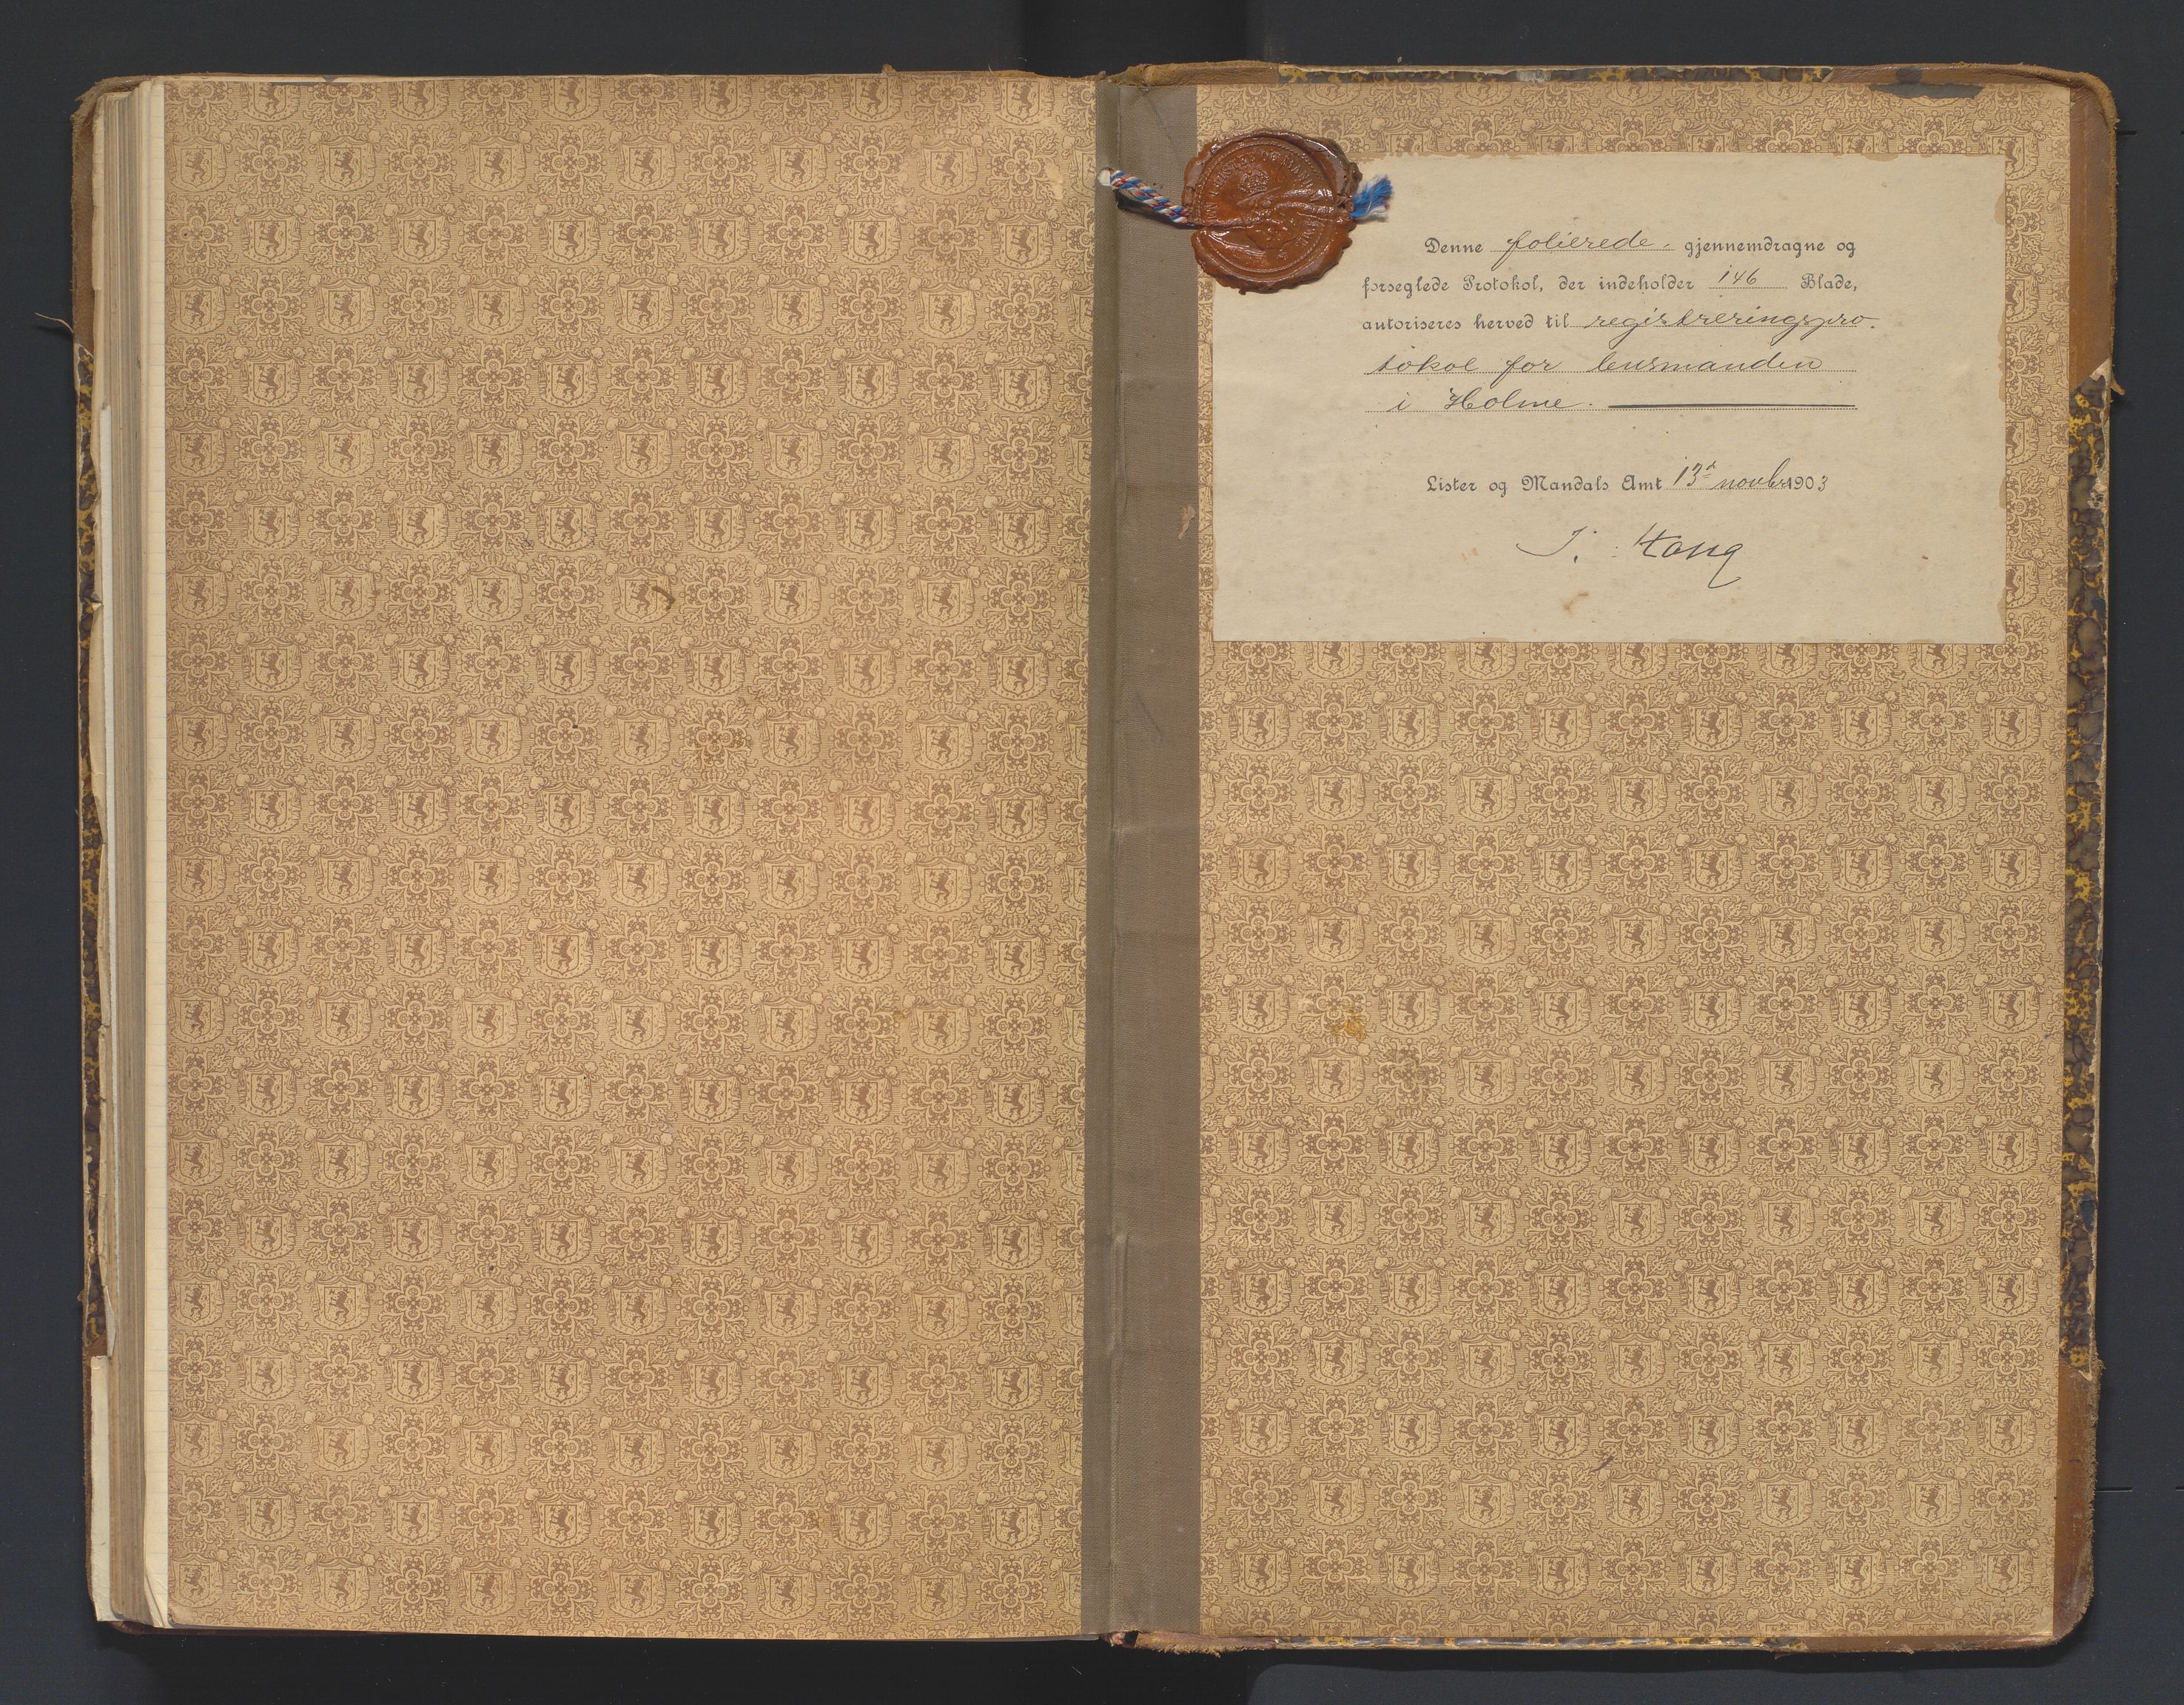 Denne folierede, gjennemdragne og
forseglede Protokol, der indeholder 146 Blade,
autoriseres herved til registreringspro-
tokol for lensmanden
i Holme.
Lister og Mandals Amt 13de novbr 1903